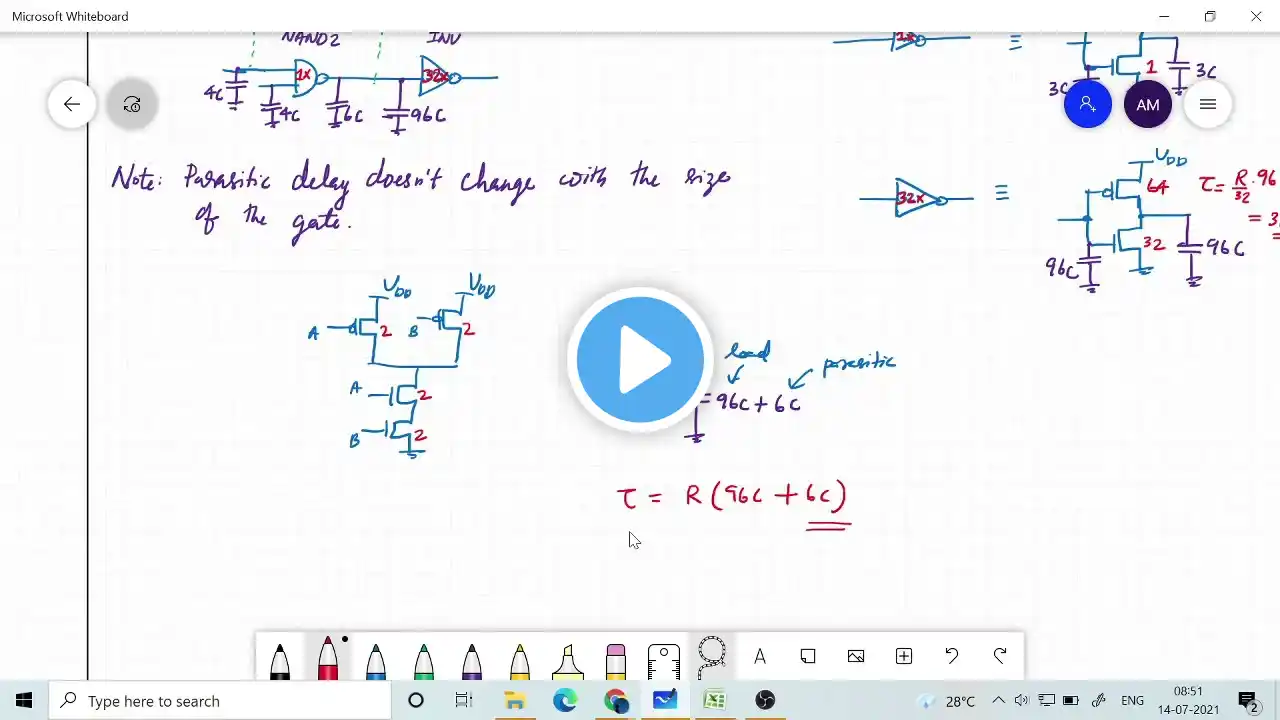 Microsoft Whiteboard
NAND2 INV
1x 32x
4C 4C 6C 96C
1x ≡ 1 3C
3C
AM
Note: Parasitic delay doesn't change with the sizes
of the gate.
32x ≡
VDD
64
32
96C 96C
τ = R/32 · 96
= 3
=
VDD VDD
A 2 B 2
A 2
B 2
load parasitic
= 96C + 6C
τ = R (96C + 6C)
A
Type here to search
28°C ENG 08:51
14-07-2021
2